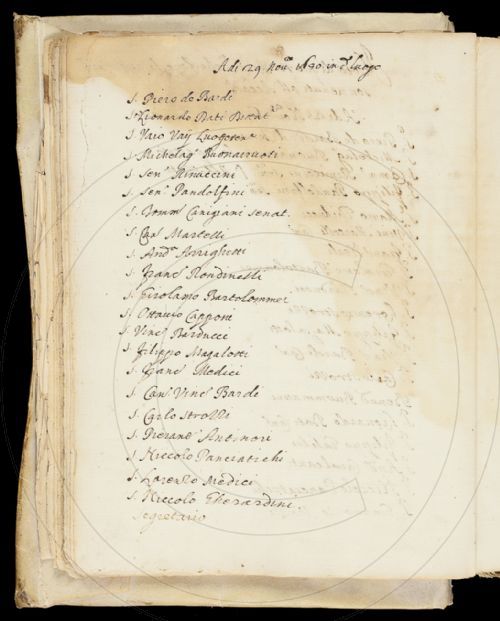 Adi 29 Nou.e 1630 in d.o luogo
S. Piero de Bardi
S. Lionardo Dati
S. Vaio Vaij Luogoten.e
S. Michelag.o Buonarruoti
S. Sen.e Rinuccini
S. Sen.e Pandolfini
S. Tomm.o Canigiani senat.
S. Can. Martelli
S. And.a Arrighetti
S. Franc.o Rondinelli
S. Girolamo Bartolommei
S. Ottauio Capponi
S. Vinc.o Barducci
S. Filippo Magalotti
S. Franc.o Medici
S. Can. Vinc.o Bardi
S. Carlo Strozzi
S. Antinori
S. Niccolo Panciatichi
S. Lorenzo Medici
S. Niccolo Gherardini
Segretario